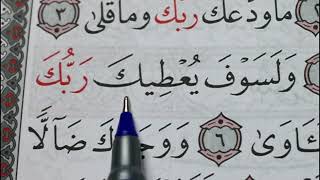 مَا وَدَّعَكَ رَبُّكَ وَمَا قَلَىٰ ٣
وَلَسَوْفَ يُعْطِيكَ رَبُّكَ
ـَٔاوَىٰ ٦ وَوَجَدَكَ ضَآلًّا